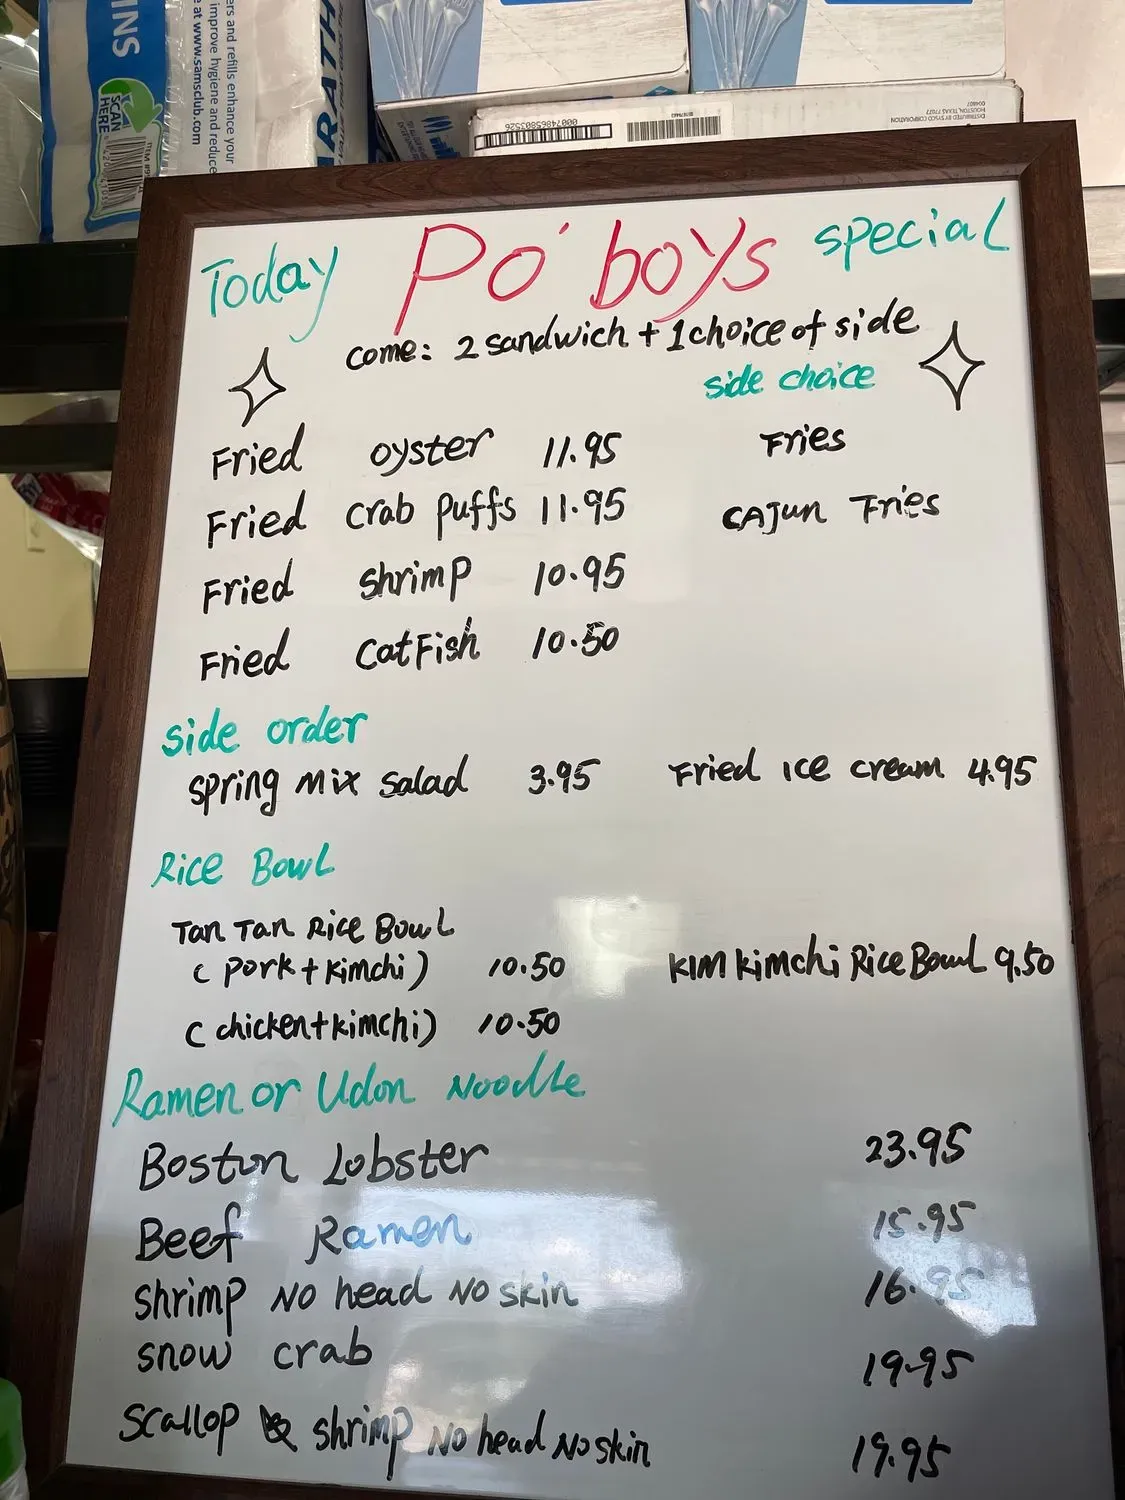 INS
SCAN HERE
ers and refills enhance your
improve hygiene and reduce
at www.samsclub.com
ARATH
00074865803526
DISTRIBUTED BY SYSCO CORPORATION
HOUSTON, TEXAS 77077
Today Po'boys special
come: 2 sandwich + 1 choice of side
side choice
Fried oyster 11.95 Fries
Fried crab puffs 11.95 CAJun Fries
Fried shrimp 10.95
Fried CatFish 10.50
side order
spring mix salad 3.95 Fried ice cream 4.95
Rice Bowl
Tan Tan Rice Bowl
(pork+kimchi) 10.50 KIM kimchi Rice Bowl 9.50
(chicken+kimchi) 10.50
Ramen or Udon Noodle
Boston Lobster 23.95
Beef Ramen 15.95
shrimp No head No skin 16.95
snow crab 19.95
scallop & shrimp No head No skin 19.95